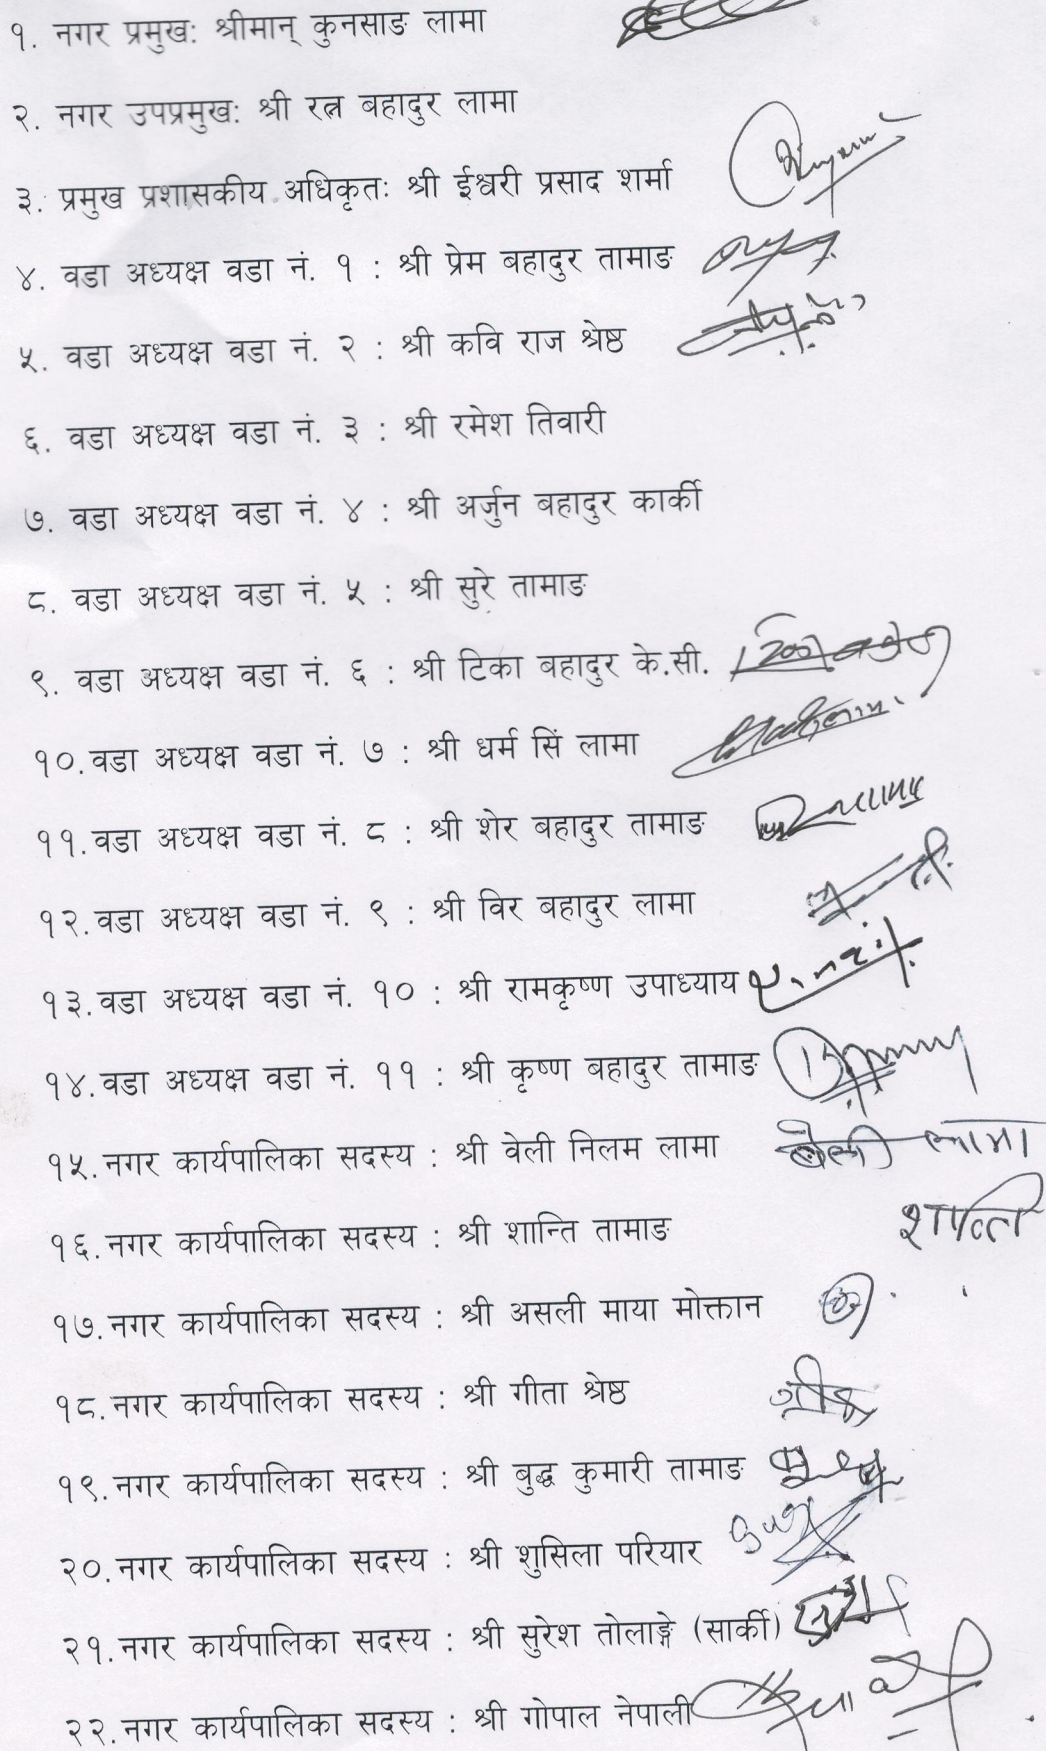 १. नगर प्रमुख: श्रीमान् कुनसाङ लामा
२. नगर उपप्रमुख: श्री रत्न बहादुर लामा
३. प्रमुख प्रशासकीय अधिकृत: श्री ईश्वरी प्रसाद शर्मा
४. वडा अध्यक्ष वडा नं. १ : श्री प्रेम बहादुर तामाङ
५. वडा अध्यक्ष वडा नं. २ : श्री कवि राज श्रेष्ठ
६. वडा अध्यक्ष वडा नं. ३ : श्री रमेश तिवारी
७. वडा अध्यक्ष वडा नं. ४ : श्री अर्जुन बहादुर कार्की
८. वडा अध्यक्ष वडा नं. ५ : श्री सुरे तामाङ
९. वडा अध्यक्ष वडा नं. ६ : श्री टिका बहादुर के.सी.
१०. वडा अध्यक्ष वडा नं. ७ : श्री धर्म सिं लामा
११. वडा अध्यक्ष वडा नं. ८ : श्री शेर बहादुर तामाङ
१२. वडा अध्यक्ष वडा नं. ९ : श्री विर बहादुर लामा
१३. वडा अध्यक्ष वडा नं. १० : श्री रामकृष्ण उपाध्याय
१४. वडा अध्यक्ष वडा नं. ११ : श्री कृष्ण बहादुर तामाङ
१५. नगर कार्यपालिका सदस्य : श्री वेली निलम लामा बेली लामा
१६. नगर कार्यपालिका सदस्य : श्री शान्ति तामाङ शान्ति
१७. नगर कार्यपालिका सदस्य : श्री असली माया मोक्तान
१८. नगर कार्यपालिका सदस्य : श्री गीता श्रेष्ठ
१९. नगर कार्यपालिका सदस्य : श्री बुद्ध कुमारी तामाङ
२०. नगर कार्यपालिका सदस्य : श्री शुसिला परियार
२१. नगर कार्यपालिका सदस्य : श्री सुरेश तोलाङ्गे (सार्की)
२२. नगर कार्यपालिका सदस्य : श्री गोपाल नेपाली